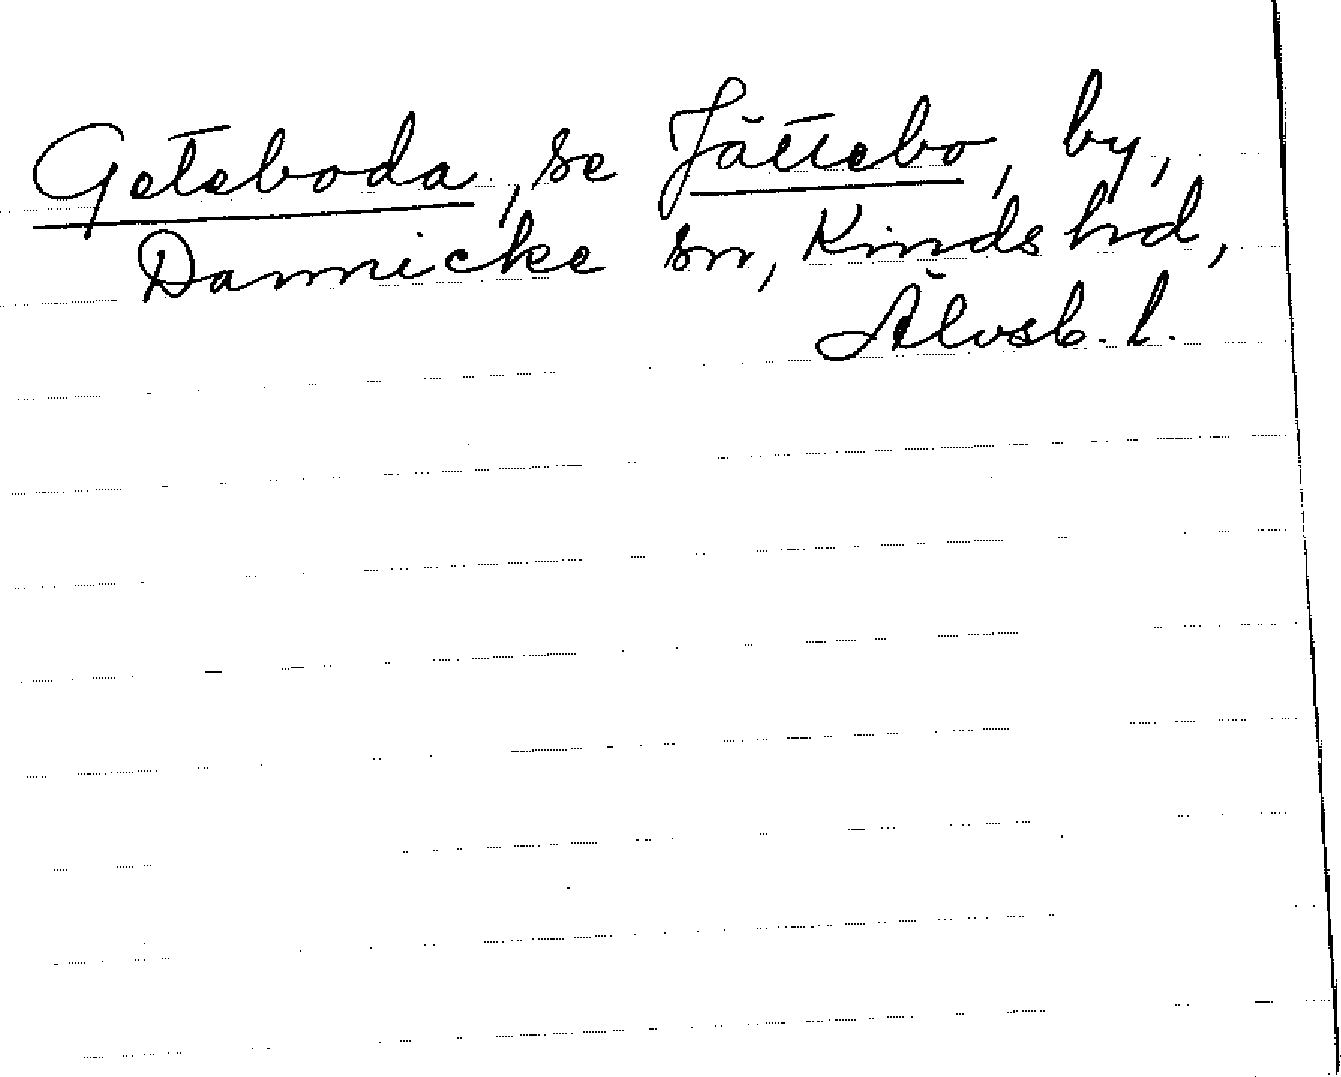 Geteboda, se Jättebo, by,
Dannicke sn, Kinds hd,
Älvsb. l.